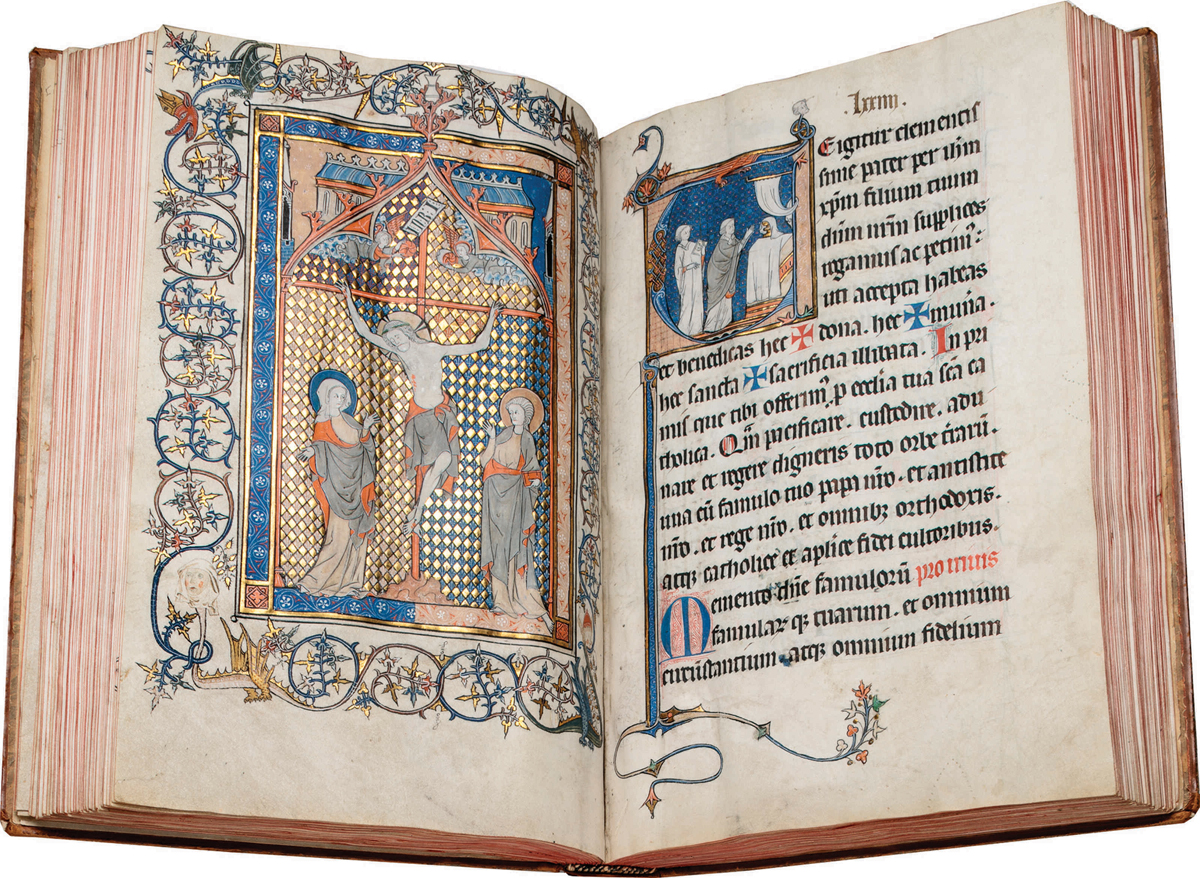 INRI
lxxiiii.
Te igitur clementis
sime pater per ihm
xpm filium tuum
dnm nrm supplices
rogamus ac petim9:
uti accepta habeas
et benedicas hec ✠ dona. hec ✠ munera.
hec sancta ✠ sacrificia illibata. In pri
mis que tibi offerim9. p ecclia tua sca ca
tholica. Qm pacificare. custodire. adu
nare et regere digneris toto orbe terraru.
una cu famulo tuo papa nro. et antistite
nro. et rege nro. et omnibz orthodoxis.
atqz catholice et aplice fidei cultoribus.
Memento dne famuloru pro uiuis
famularqz tuarum. et omnium
circustantium. atqz omnium fidelium